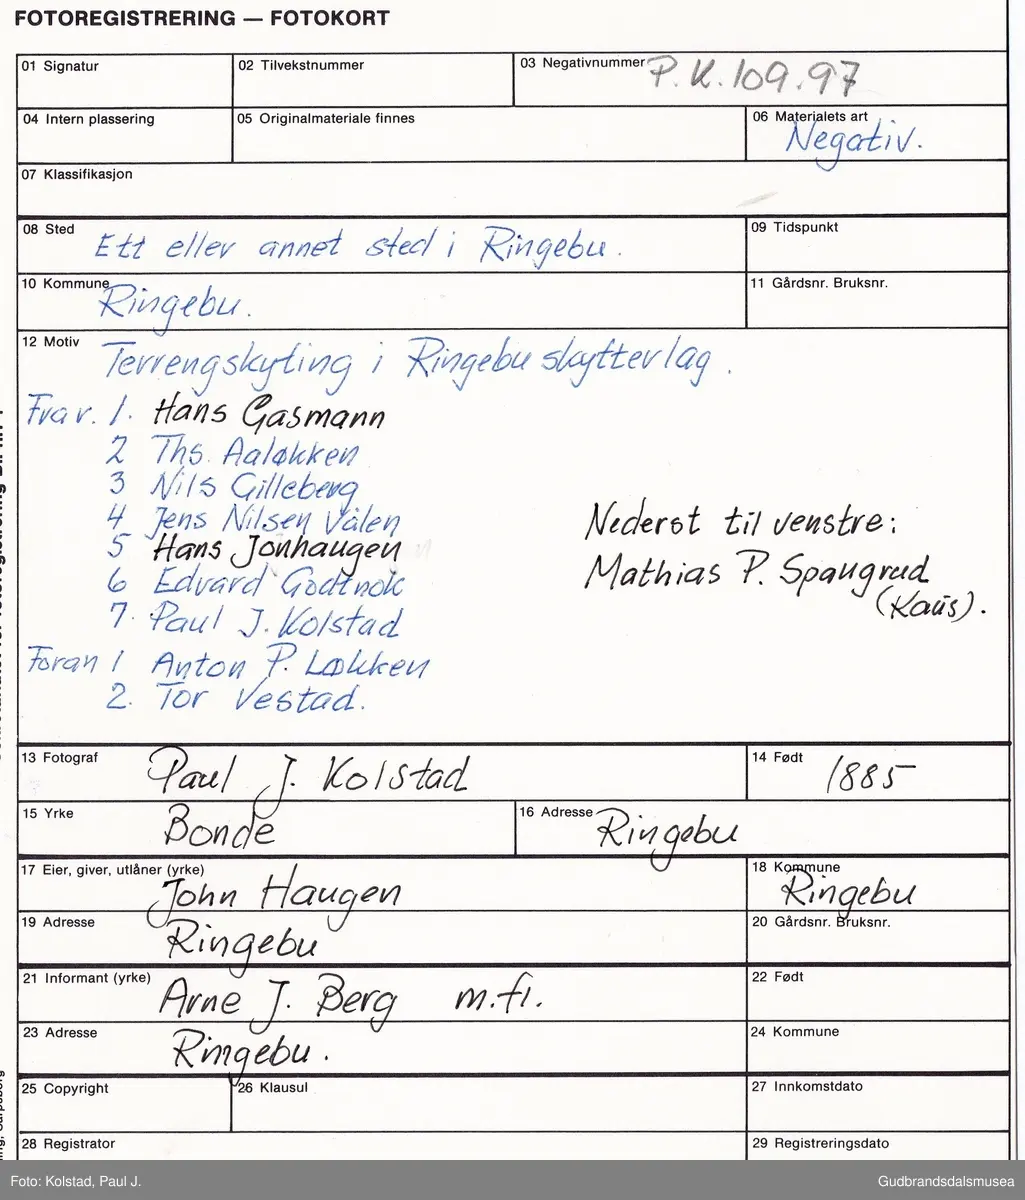 FOTOREGISTRERING — FOTOKORT
01 Signatur
02 Tilvekstnummer
03 Negativnummer P.K.109.97
04 Intern plassering
05 Originalmateriale finnes
06 Materialets art
Negativ.
07 Klassifikasjon
08 Sted Ett eller annet sted i Ringebu.
09 Tidspunkt
10 Kommune Ringebu.
11 Gårdsnr. Bruksnr.
12 Motiv Terrengskyting i Ringebu skytterlag.
Fra v. 1. Hans Gasmann
2 Ths. Aaløkken
3 Nils Gilleberg
4 Jens Nilsen Vålen
5 Hans Jonhaugen
6 Edvard Godtnok
7. Paul J. Kolstad
Foran 1 Anton P. Løkken
2. Tor Vestad.
Nederst til venstre:
Mathias P. Spangrud
(Kaus).
13 Fotograf Paul J. Kolstad
14 Født 1885
15 Yrke Bonde
16 Adresse Ringebu
17 Eier, giver, utlåner (yrke)
John Haugen
18 Kommune
Ringebu
19 Adresse Ringebu
20 Gårdsnr. Bruksnr.
21 Informant (yrke) Arne J. Berg m.fl.
22 Født
23 Adresse Ringebu.
24 Kommune
25 Copyright
26 Klausul
27 Innkomstdato
28 Registrator
29 Registreringsdato
Foto: Kolstad, Paul J.
Gudbrandsdalsmusea